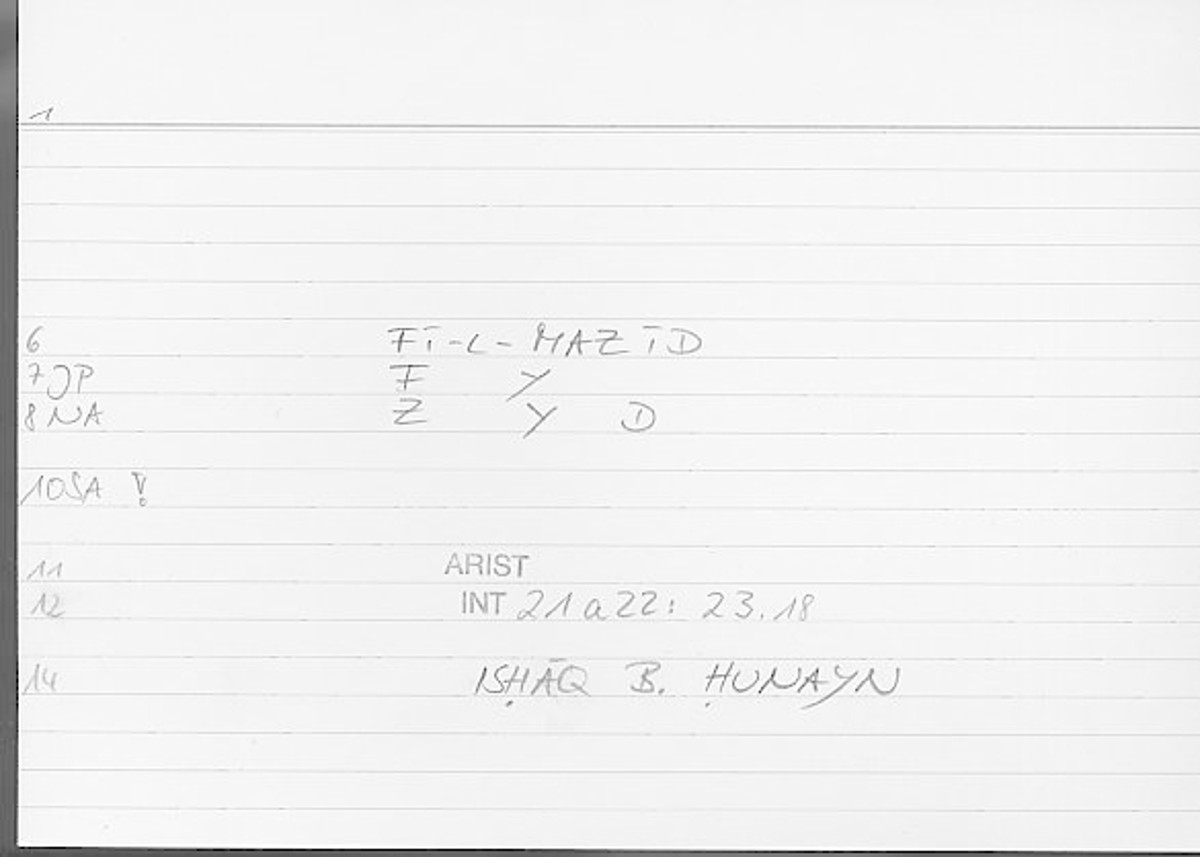 1
6 FĪ-L-MAZĪD
7 JP F Y
8 NA Z Y D
10 SA !
11 ARIST
12 INT 21 a 22 : 23.18
14 ISḤĀQ B. ḤUNAYN